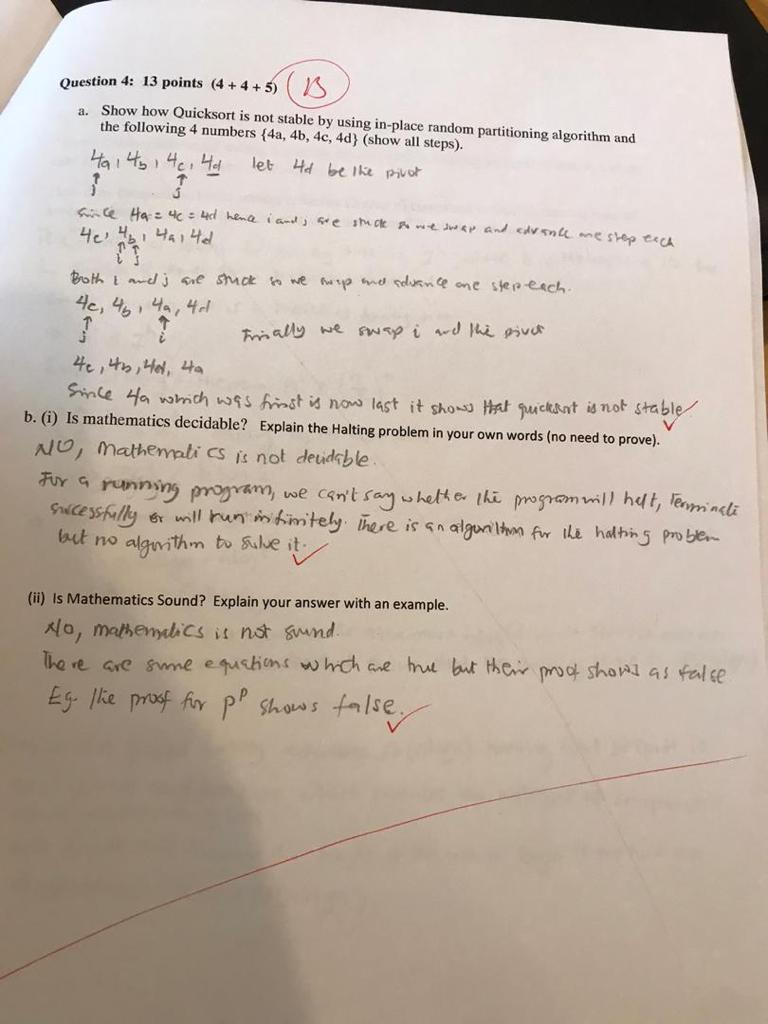 Question 4: 13 points (4 + 4 + 5) 13
a. Show how Quicksort is not stable by using in-place random partitioning algorithm and
the following 4 numbers {4a, 4b, 4c, 4d} (show all steps).
4a, 4b, 4c, 4d let 4d be the pivot
↑ ↑
i j
Since 4a = 4c = 4d hence i and j are stuck so we swap and advance one step each
4c, 4b, 4a, 4d
↑↑
i j
Both i and j are stuck so we swap and advance one step each.
4c, 4b, 4a, 4d
↑ ↑
j i
Finally we swap i and the pivot
4c, 4b, 4d, 4a
Since 4a which was first is now last it shows that quicksort is not stable
b. (i) Is mathematics decidable? Explain the Halting problem in your own words (no need to prove).
NO, Mathematics is not decidable.
For a running program, we can't say whether the program will halt, Terminate
successfully or will run infinitely. There is an algorithm for the halting problem
but no algorithm to solve it.
(ii) Is Mathematics Sound? Explain your answer with an example.
No, mathematics is not sound.
There are some equations which are true but their proof shows as false
Eg. The proof for pᵖ shows false.